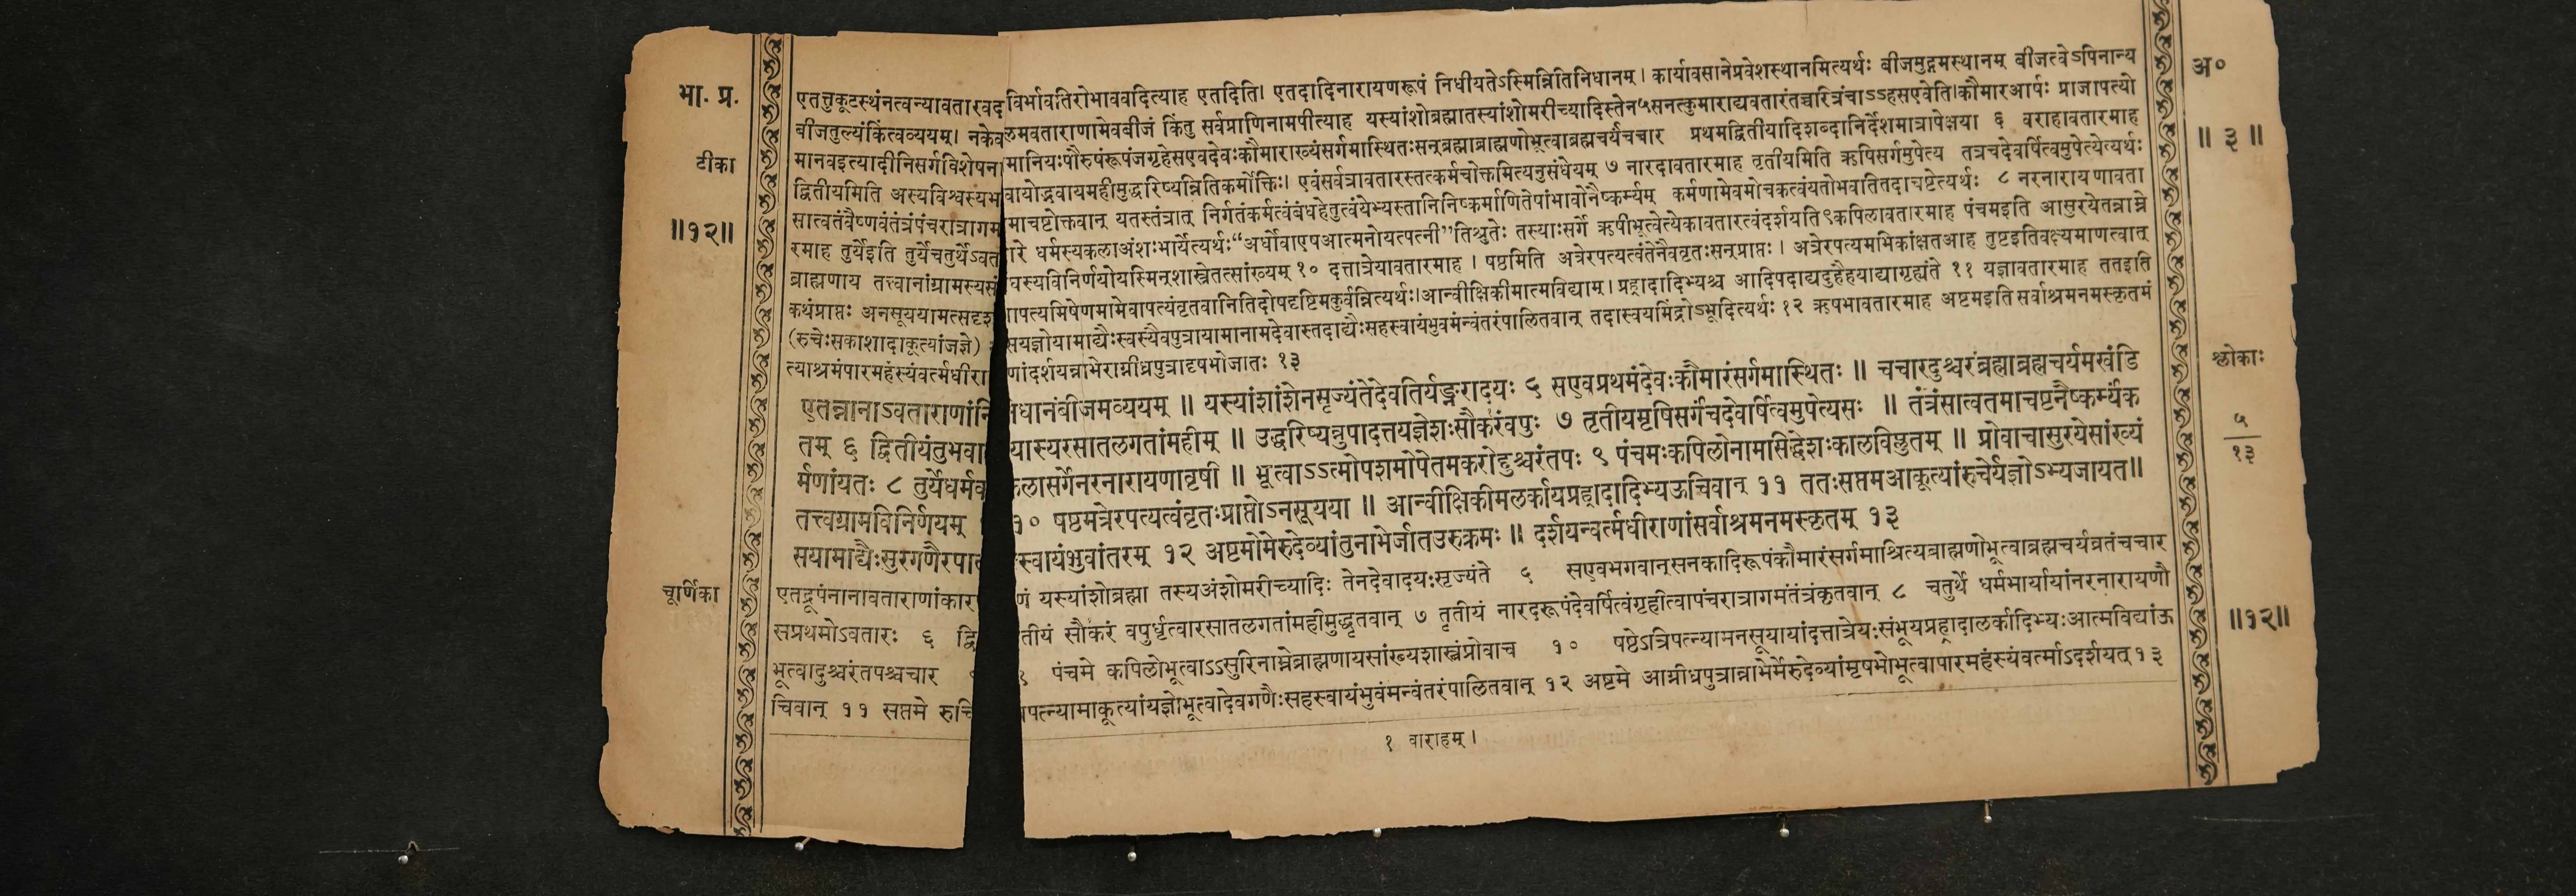 भा. प्र.
टीका
॥१२॥
चूर्णिका
एतत्तुकूटस्थंनत्वन्यावतारवद विर्भावतिरोभाववदित्याह एतदिति। एतदादिनारायणरूपं निधीयतेऽस्मिन्नितिनिधानम्। कार्यावसानेप्रवेशस्थानमित्यर्थः बीजमुद्गमस्थानम् बीजत्वेऽपिनान्य
बीजतुल्यंकिंत्वव्ययम्। नकेव लमवताराणामेवबीजं किंतु सर्वप्राणिनामपीत्याह यस्यांशोब्रह्मातस्यांशोमरीच्यादिस्तेन५सनत्कुमाराद्यवतारंतच्चरित्रंचाऽऽहसएवेति।कौमारआर्षः प्राजापत्यो
मानवइत्यादीनिसर्गविशेषना मानियःपौरुषंरूपंजगृहेसएवदेवःकौमाराख्यंसर्गमास्थितःसन्ब्रह्माब्राह्मणोभूत्वाब्रह्मचर्यंचचार प्रथमद्वितीयादिशब्दानिर्देशमात्रापेक्षया ६ वराहावतारमाह
द्वितीयमिति अस्यविश्वस्यभ वायोद्भवायमहीमुद्धरिष्यन्नितिकर्मोक्तिः। एवंसर्वत्रावतारस्तत्कर्मचोक्तमित्यनुसंधेयम् ७ नारदावतारमाह तृतीयमिति ऋषिसर्गमुपेत्य तत्रचदेवर्षित्वमुपेत्येत्यर्थः
सात्वतंवैष्णवंतंत्रंपंचरात्रागम माचष्टोक्तवान् यतस्तंत्रात् निर्गतंकर्मत्वंबंधहेतुत्वंयेभ्यस्तानिनिष्कर्माणितेषांभावोनैष्कर्म्यम् कर्मणामेवमोचकत्वंयतोभवतितदाचष्टेत्यर्थः ८ नरनारायणावता
रमाह तुर्येइति तुर्येचतुर्थेऽवत ारे धर्मस्यकलाअंशःभार्येत्यर्थः“अर्धोवाएषआत्मनोयत्पत्नी”तिश्रुतेः तस्याःसर्गे ऋषीभूत्वेत्येकावतारत्वंदर्शयति९कपिलावतारमाह पंचमइति आसुरयेतन्नाम्ने
ब्राह्मणाय तत्त्वानांग्रामस्यसं घस्यविनिर्णयोयस्मिन्शास्त्रेतत्सांख्यम् १० दत्तात्रेयावतारमाह । षष्ठमिति अत्रेरपत्यत्वंतेनैववृतःसन्प्राप्तः । अत्रेरपत्यमभिकांक्षतआह तुष्टइतिवक्ष्यमाणत्वात्
कथंप्राप्तः अनसूययामत्सदृश ापत्यमिषेणमामेवापत्यंवृतवानितिदोषदृष्टिमकुर्वन्नित्यर्थः।आन्वीक्षिकीमात्मविद्याम्। प्रह्रादादिभ्यश्च आदिपदाद्यदुहैहयाद्यागृह्यंते ११ यज्ञावतारमाह ततइति
(रुचेःसकाशादाकूत्यांजज्ञे) सयज्ञोयामाद्यैःस्वस्यैवपुत्रायामानामदेवास्तदाद्यैःसहस्वायंभुवमंन्वंतरंपालितवान् तदास्वयमिंद्रोऽभूदित्यर्थः १२ ऋषभावतारमाह अष्टमइति सर्वाश्रमनमस्कृतमं
त्याश्रमंपारमहंस्यंवर्त्मधीरा णांदर्शयन्नाभेराग्नीध्रपुत्रादृषभोजातः १३
एतन्नानाऽवताराणांनि धानंबीजमव्ययम् ॥ यस्यांशांशेनसृज्यंतेदेवतिर्यङ्नरादयः ५ सएवप्रथमंदेवःकौमारंसर्गमास्थितः ॥ चचारदुश्चरंब्रह्माब्रह्मचर्यमखंडि
तम् ६ द्वितीयंतुभवा यास्यरसातलगतांमहीम् ॥ उद्धरिष्यन्नुपादत्तयज्ञेशःसौकरंवपुः ७ तृतीयमृषिसर्गंचदेवार्षित्वमुपेत्यसः ॥ तंत्रंसात्वतमाचष्टनैष्कर्म्यंक
र्मणांयतः ८ तुर्येधर्मक लासर्गेनरनारायणावृषी ॥ भूत्वाऽऽत्मोपशमोपेतमकरोद्दुश्चरंतपः ९ पंचमःकपिलोनामसिद्धेशःकालविप्लुतम् ॥ प्रोवाचासुरयेसांख्यं
तत्त्वग्रामविनिर्णयम् १० षष्ठमत्रेरपत्यत्वंवृतःप्राप्तोऽनसूयया ॥ आन्वीक्षिकीमलर्कायप्रह्रादादिभ्यऊचिवान् ११ ततःसप्तमआकूत्यांरुचेर्यज्ञोऽभ्यजायत॥
सयामाद्यैःसुरगणैरपात् स्वायंभुवांतरम् १२ अष्टमोमेरुदेव्यांतुनाभेर्जातउरुक्रमः ॥ दर्शयन्वर्त्मधीराणांसर्वाश्रमनमस्कृतम् १३
एतद्रूपंनानावताराणांकार णं यस्यांशोब्रह्मा तस्यअंशोमरीच्यादिः तेनदेवादयःसृज्यंते ५ सएवभगवान्सनकादिरूपंकौमारंसर्गमाश्रित्यब्राह्मणोभूत्वाब्रह्मचर्यव्रतंचचार
सप्रथमोऽवतारः ६ द्वि तीयं सौकरं वपुर्धृत्वारसातलगतांमहीमुद्धृतवान् ७ तृतीयं नारदरूपंदेवर्षित्वंगृहीत्वापंचरात्रागमंतंत्रंकृतवान् ८ चतुर्थे धर्मभार्यायांनरनारायणौ
भूत्वादुश्चरंतपश्चचार ९ पंचमे कपिलोभूत्वाऽऽसुरिनाम्नेब्राह्मणायसांख्यशास्त्रंप्रोवाच १० षष्ठेऽत्रिपत्न्यामनसूयायांदत्तात्रेयःसंभूयप्रह्रादालर्कादिभ्यःआत्मविद्यांऊ
चिवान् ११ सप्तमे रुचि पत्न्यामाकूत्यांयज्ञोभूत्वादेवगणैःसहस्वायंभुवंमन्वंतरंपालितवान् १२ अष्टमे आग्नीध्रपुत्रान्नाभेर्मेरुदेव्यांमृषभोभूत्वापारमहंस्यंवर्त्माऽदर्शयत् १३
१ वाराहम् ।
अ०
॥ ३ ॥
श्लोकाः
५
१३
॥१२॥